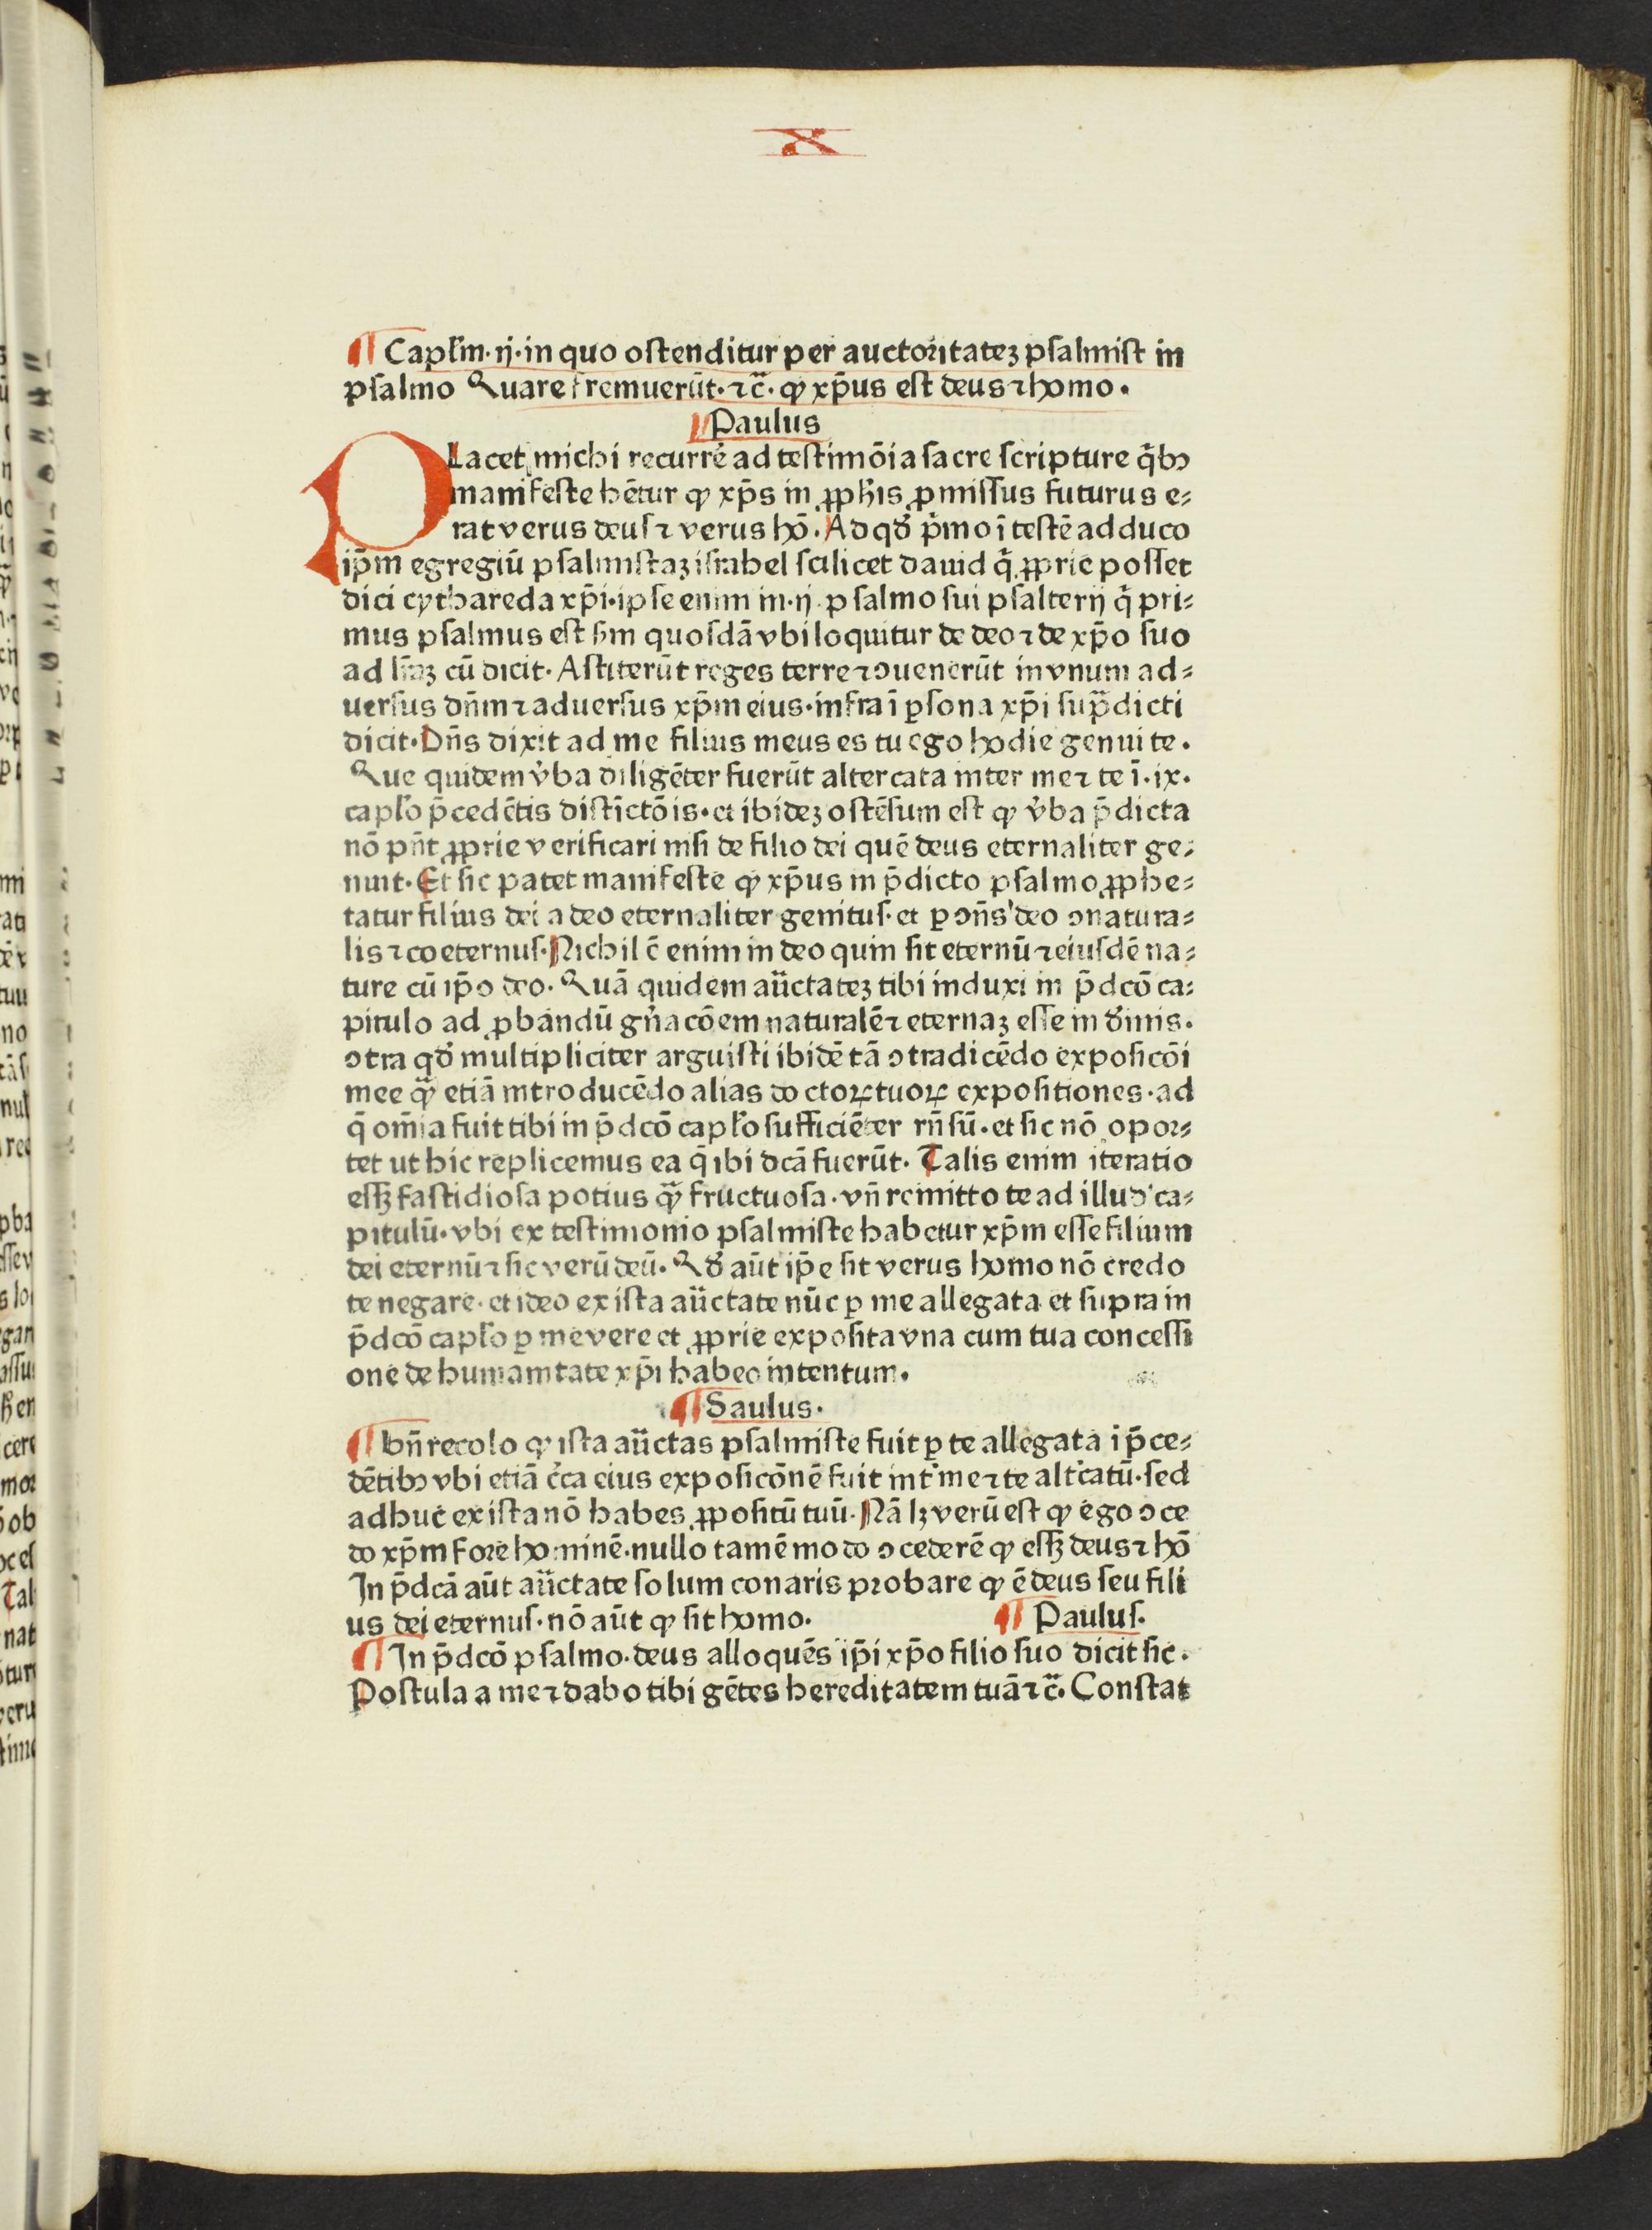 X
¶ Capłm·ij·in quo oſtenditur per auctoꝛitateꝫ pſalmiſt in
pſalmo Quare fremuerūt·⁊c̄· ꝙ xp̄us eſt deus ⁊ homo.
¶ Paulus
PLacet michi recurrere ad teſtimōia ſacre ſcripture q̄bꝰ
manifeſte hētur ꝙ xp̄s in ꝓph̄is ꝓmiſſus futurus e⸗
rat verus deuſ ⁊ verus hō. Ad qḋ p̄mo ī teſtē adduco
ip̄m egregiū pſalmiſtaꝫ iſrahel ſcilicet dauid q̄ ꝓprie poſſet
dici cythareda xp̄i·ipſe enim in·ij·pſalmo ſui pſalterij q̄ pri⸗
mus pſalmus eſt ẜm quoſdā vbi loquitur de deo ⁊ de xp̄o ſuo
ad lr̄aꝫ cū dicit· Aſtiterūt reges terre ⁊ ↄuenerūt in vnum ad⸗
uerſus dn̄m ⁊ aduerſus xp̄m eius·infra ī ꝑſona xp̄i ſup̄dicti
dicit·Dn̄s dixit ad me filius meus es tu ego hodie genui te.
Que quidem v̓ba diligēter fuerūt altercata inter me ⁊ te ī·ix·
capło p̄cedētis diſtīctōis·et ibideꝫ oſtēſum eſt ꝙ v̓ba p̄dicta
nō pn̄t ꝓprie verificari niſi de filio dei quē deus eternaliter ge⸗
nuit·Et ſic patet manifeſte ꝙ xp̄us in p̄dicto pſalmo ꝓphe⸗
tatur filius dei a deo eternaliter genituſ·et ꝑ ↄn̄s deo ↄnatura⸗
lis ⁊ coeternuſ·Nichil ē enim in deo quin ſit eternū ⁊ eiuſdē na⸗
ture cū ip̄o deo· Quā quidem aūctateꝫ tibi induxi in p̄dcō ca⸗
pitulo ad ꝓbandū gn̓acōem naturalē ⁊ eternaꝫ eſſe in diuinis.
ↄtra qḋ multipliciter arguiſti ibidē tā ↄtradicēdo expoſicōi
mee q̄ꝫ etiā introducēdo alias doctoꝝ tuoꝝ expoſitiones·ad
q̄ om̄ia fuit tibi in p̄dcō capło ſufficiēter rn̄ſū·et ſic nō opoꝛ⸗
tet ut hic replicemus ea q̄ ibi dcā fuerūt· Talis enim iteratio
eſſꝫ faſtidioſa potius q̄ꝫ fructuoſa·vn̄ remitto te ad illud ca⸗
pitulū·vbi ex teſtimonio pſalmiſte habetur xp̄m eſſe filium
dei eternū ⁊ ſic verū deū· Qḋ aūt ip̄e ſit verus homo nō credo
te negare·et ideo ex iſta aūctate nūc ꝑ me allegata et ſupra in
p̄dcō capło ꝑ me vere et ꝓprie expoſita vna cum tua conceſſi
one de humanitate xp̄i habeo intentum.
¶ Saulus·
¶ bn̄ recolo ꝙ iſta aūctas pſalmiſte fuit ꝑ te allegata ī p̄ce⸗
dētibꝰ vbi etiā c̓ca eius expoſicōnē fuit int̓ me ⁊ te alt̓catū·ſed
adhuc ex iſta nō habes ꝓpoſitū tuū·Nā lꝫ verū eſt ꝙ ego ↄce
do xp̄m foꝛe hominē·nullo tamē modo ↄcederē ꝙ eſſꝫ deus ⁊ hō
In p̄dcā aūt aūctate ſolum conaris pꝛobare ꝙ ē deus ſeu fili
us dei eternuſ·nō aūt ꝙ ſit homo. ¶ Pauluſ·
¶ In p̄dcō pſalmo·deus alloquēs ip̄i xp̄o filio ſuo dicit ſic.
Poſtula a me ⁊ dabo tibi gētes hereditatem tuā ⁊c̄· Conſtat